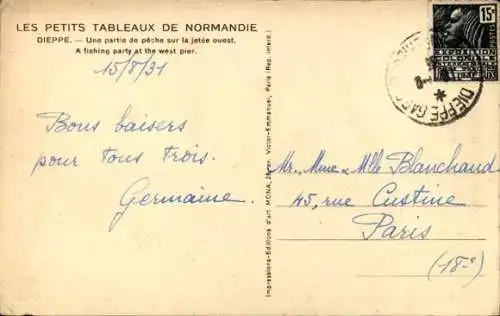 LES PETITS TABLEAUX DE NORMANDIE
DIEPPE. — Une partie de pêche sur la jetée ouest.
A fishing party at the west pier.
15/8/31
Bons baisers
pour tous trois.
Germaine.
Impressions-Editions d'art MONA, Victor-Emmanuel, Paris (Rep. interd.)
15c
POSTES
EXPOSITION
COLONIALE
INTERNATIONALE
DIEPPE GARE
Mr, Mme & Mlle Blanchaud
45, rue Custine
Paris
(18-e)